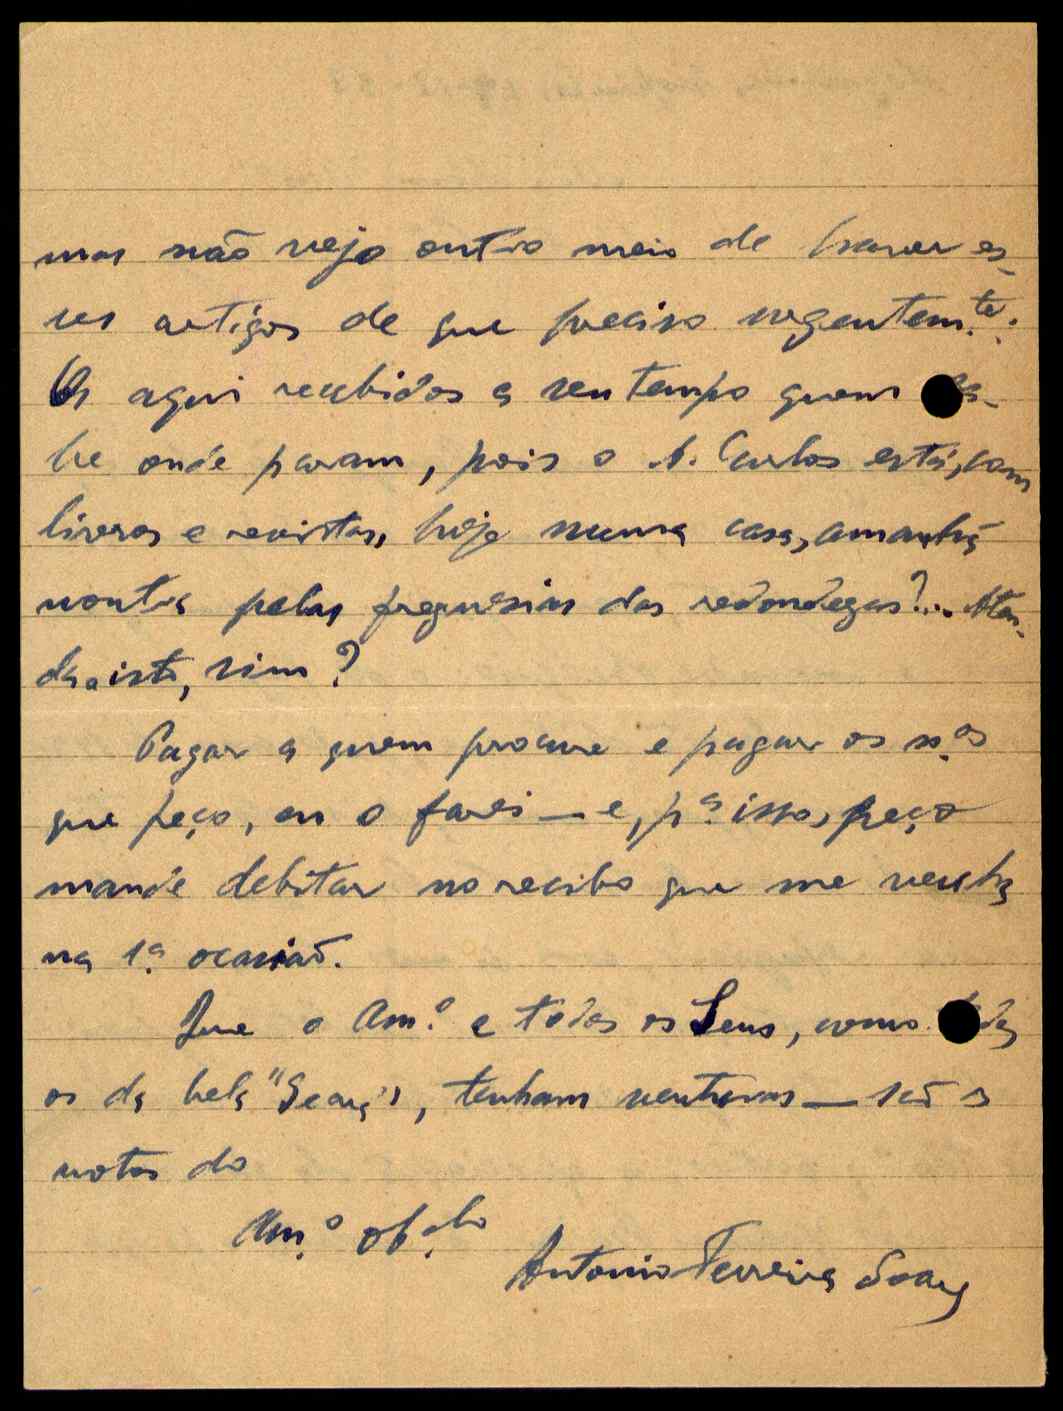 mas não vejo outro meio de haver es-
ses artigos de que preciso urgentem.te.
Os aqui recebidos a seu tempo quem sa-
be onde param, pois o A. Carlos está, com
livros e revistas, hoje numa casa, amanhã
noutra pelas freguesias das redondezas?... Aten-
da a isto, sim?
Pagar a quem procure e pagar os n.os
que peço, eu o farei — e, p.a isso, peço
mande debitar no recibo que me venha
na 1.a ocasião.
Que o Am.o e todos os Seus, como todos
os da bela "Seara", tenham venturas — são os
votos do
Am.o ob.do
Antonio Ferreira Soares